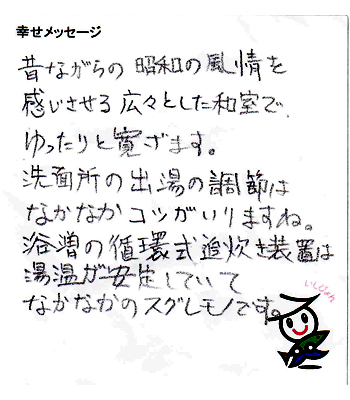 幸せメッセージ
昔ながらの昭和の風情を
感じさせる広々とした和室で
ゆったりと寛ぎます。
洗面所の出湯の調節は
なかなかコツがいりますね。
浴槽の循環式追炊き装置は
湯温が安定していて
なかなかのスグレモノです。